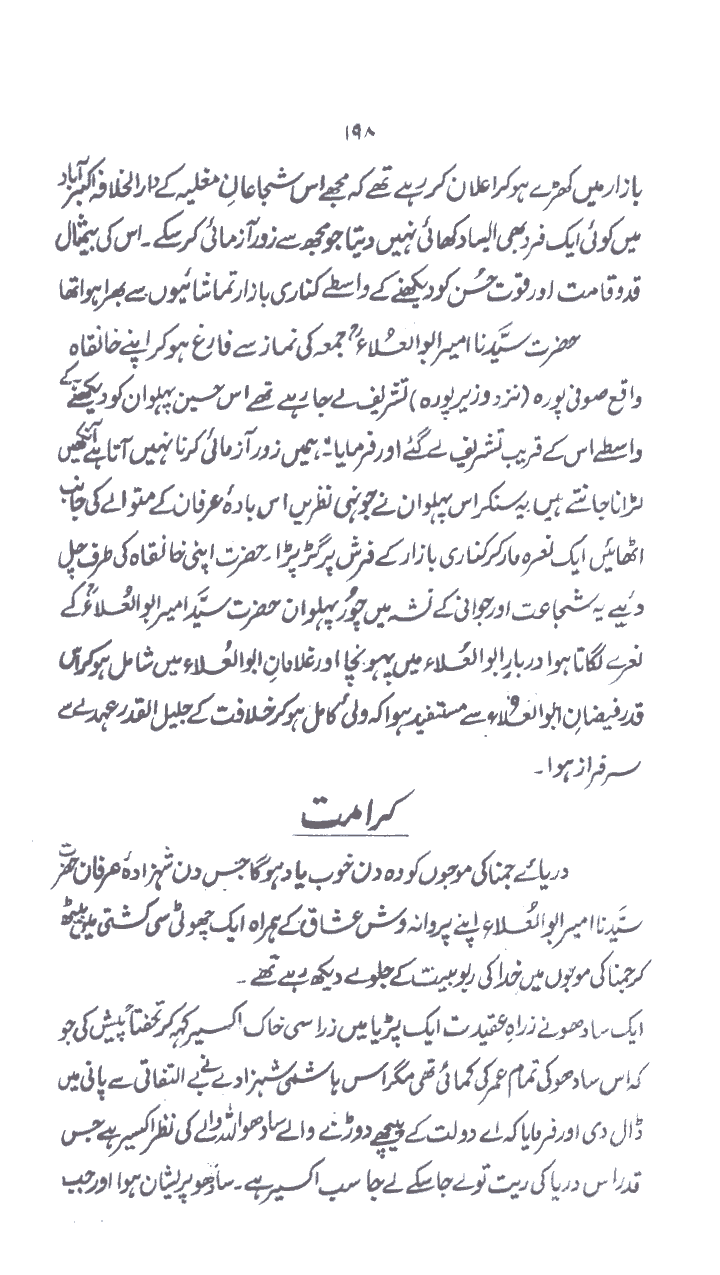 ۱۹۸
بازار میں کھڑے ہوکر اعلان کر رہے تھے کہ مجھے اس شجاعانِ مغلیہ کے دارالخلافہ اکبرآباد
میں کوئی ایک فرد بھی ایسا دکھائی نہیں دیتا جو مجھ سے زور آزمائی کرسکے۔ اس کی بیمثال
قد و قامت اور قوت حُسن کو دیکھنے کے واسطے کناری بازار تماشائیوں سے بھرا ہوا تھا
حضرت سیَّدنا امیر ابوالعُلاءؒ جمعہ کی نماز سے فارغ ہوکر اپنے خانقاہ
واقع صوفی پورہ (نزد وزیر پورہ) تشریف لے جارہے تھے اس حسین پہلوان کو دیکھنے کے
واسطے اس کے قریب تشریف لے گئے اور فرمایا۔ ہمیں زور آزمائی کرنا نہیں آتا ہے آنکھیں
لڑانا جانتے ہیں یہ سنکر اس پہلوان نے جونہی نظریں اس بادۂ عرفان کے متوالے کی جانب
اٹھائیں ایک نعرہ مار کر کناری بازار کے فرش پر گڑ پڑا۔ حضرت اپنی خانقاہ کی طرف چل
دئیے یہ شجاعت اور جوانی کے نشہ میں چُور پہلوان حضرت سیَّد امیر ابوالعُلاءؒ کے
نعرے لگاتا ہوا دربارِ ابوالعُلاء میں پہونچا اور غلامانِ ابوالعُلاء میں شامل ہوکر اس
قدر فیضانِ ابوالعلاء سے مستفید ہوا کہ ولیٔ کامل ہوکر خلافت کے جلیل القدر عہدے سے
سرفراز ہوا۔
کرامت
دریائے جمنا کی موجوں کو وہ دن خوب یاد ہوگا جس دن شہزادۂ عرفان حضرت
سیَّدنا امیر ابوالعُلاء اپنے پروانہ وش عشاق کے ہمراہ ایک چھوٹی سی کشتی میں بیٹھ
کر جمنا کی موجوں میں خدا کی ربوبیت کے جلوے دیکھ رہے تھے۔
ایک سادھو نے زراہِ عقیدت ایک پڑیا میں زرا سی خاک اکسیر کہہ کر تحفتاً پیش کی جو
کہ اس سادھو کی تمام عمر کی کمائی تھی مگر اس ہاشمی شہزادے نے بے التفاتی سے پانی میں
ڈال دی اور فرمایا کہ اے دولت کے پیچھے دوڑنے والے سادھو اللہ والے کی نظر اکسیر ہے جس
قدر اس دریا کی ریت تو لے جاسکے لے جا سب اکسیر ہے۔ سادھو پریشان ہوا اور جب